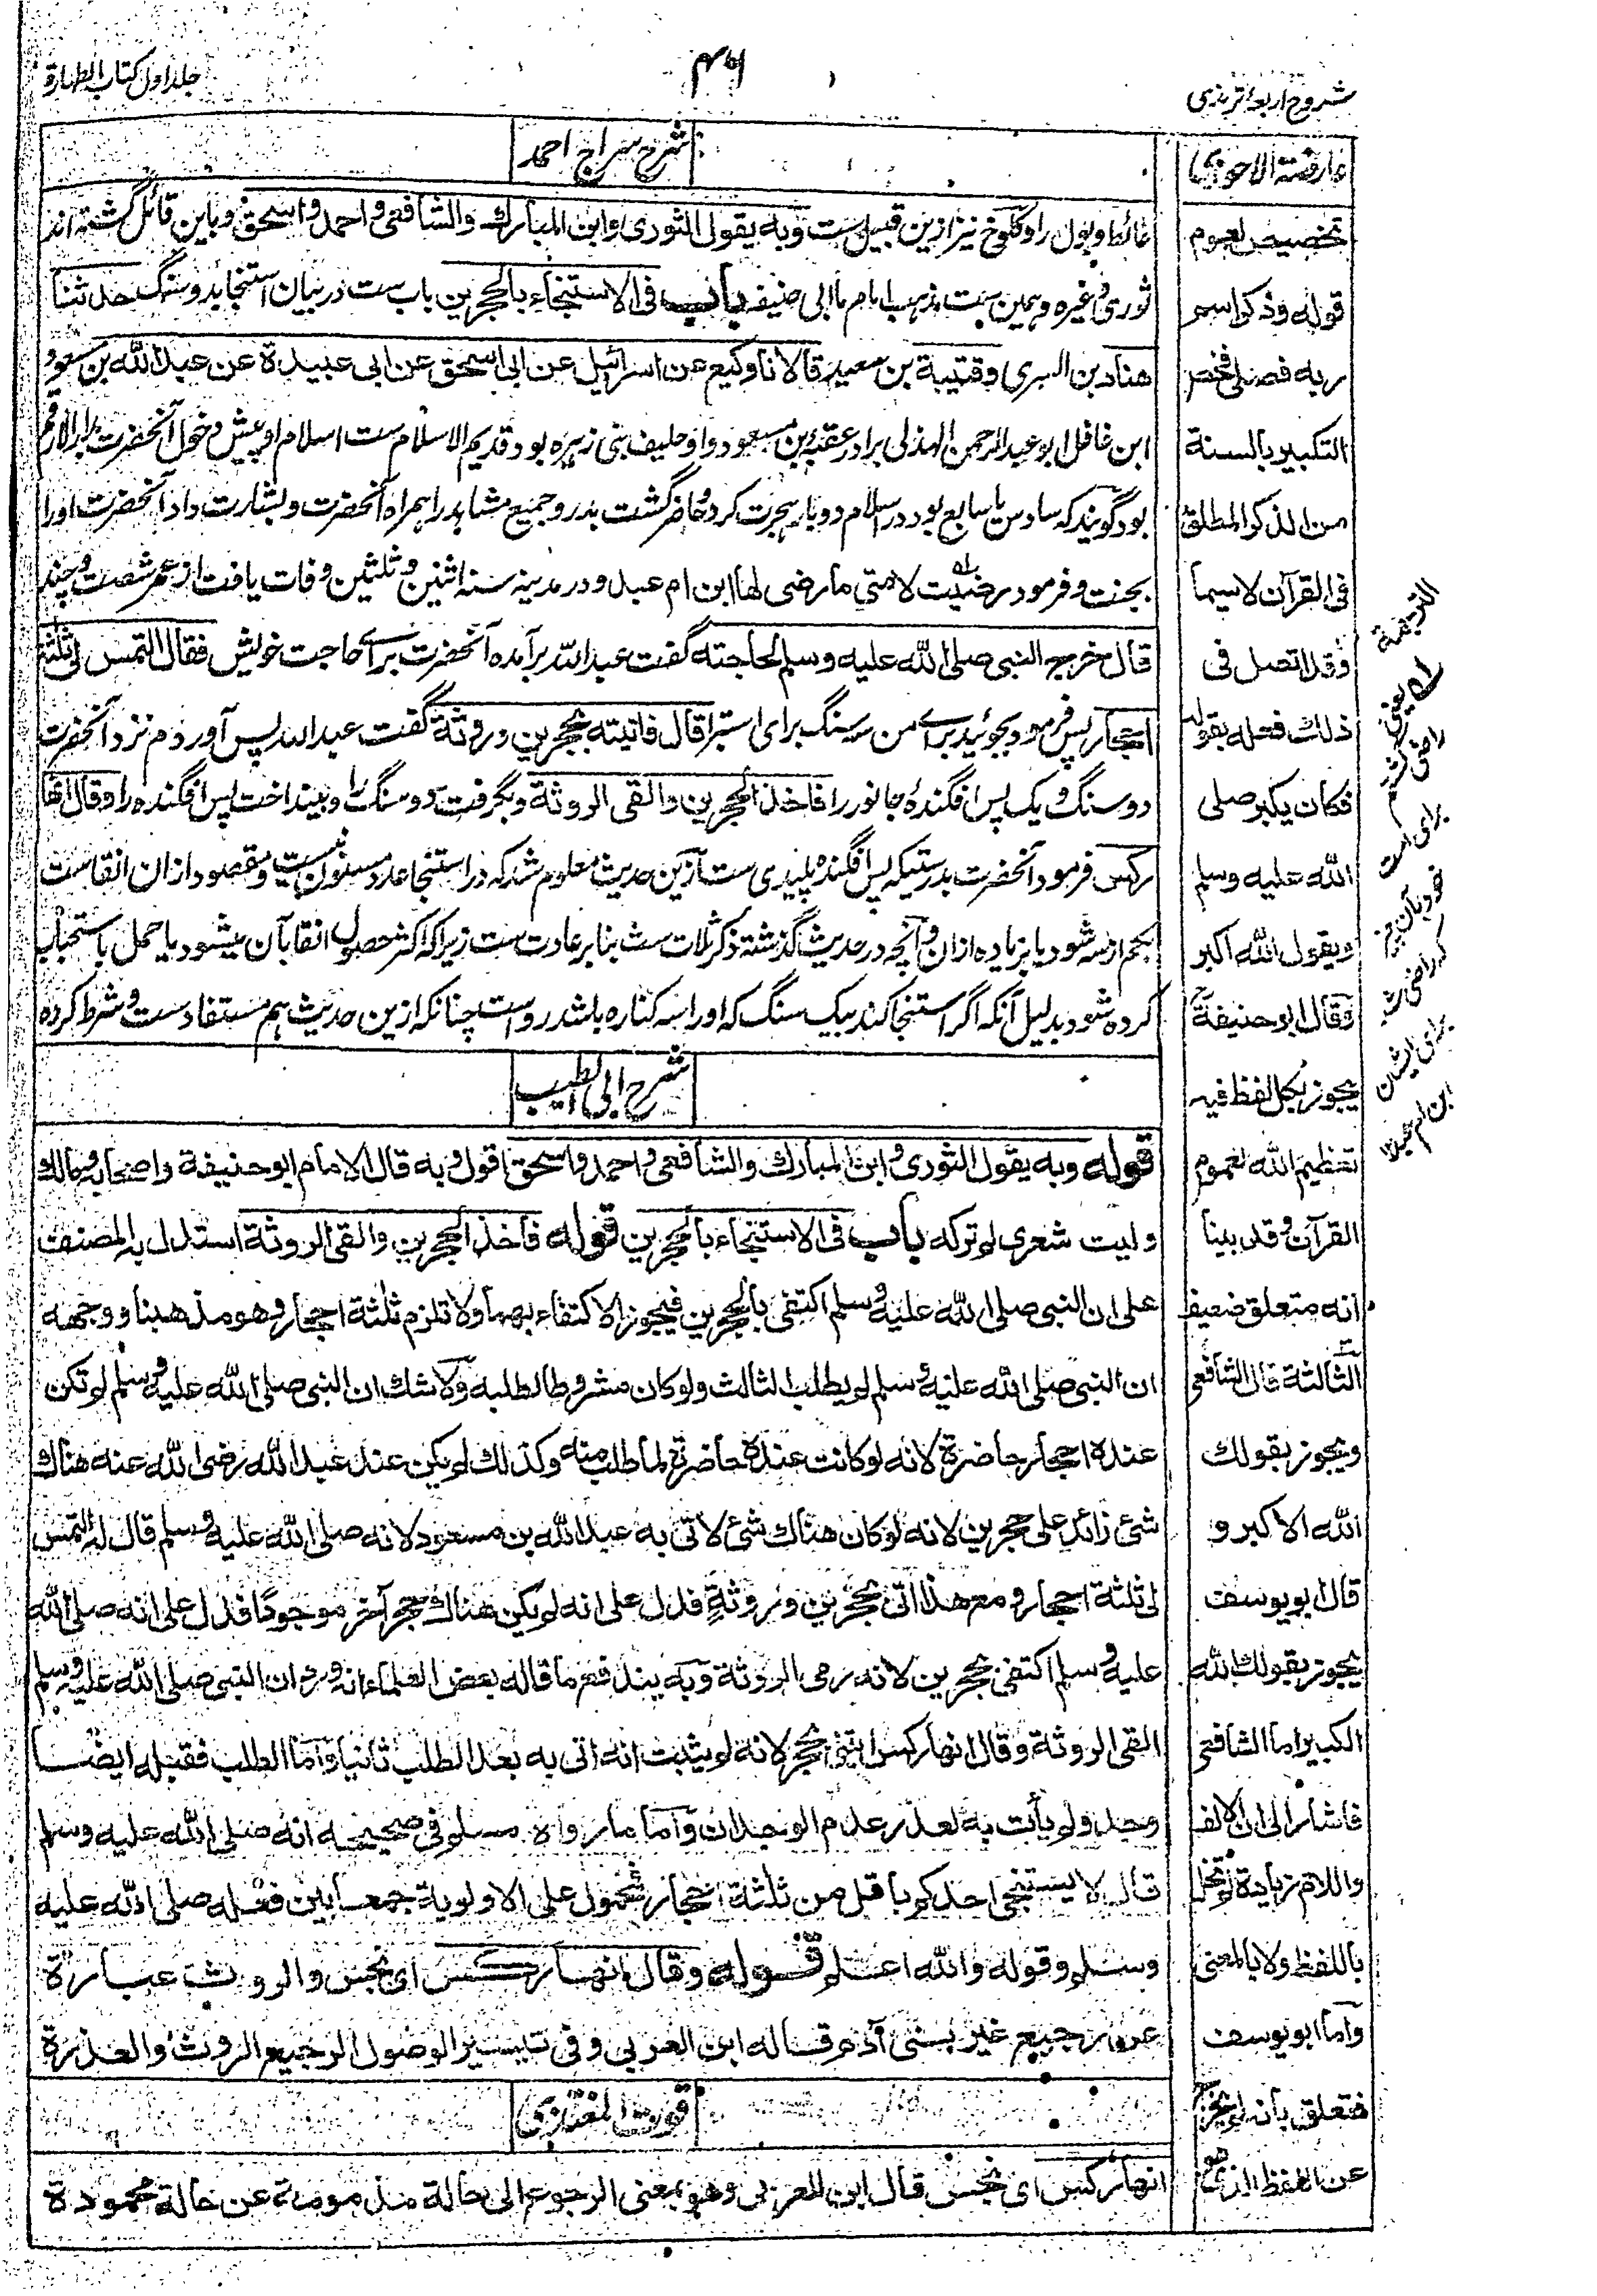 شروح اربعۂ ترمذی
۴۶
جلد اول کتاب الطهارة
عارضة الاحوذی
تخصیص لعموم
قوله وذکر اسم
ربه فصلی فخص
التکبیر بالسنة
من الذکر المطلق
فی القرآن لاسیما
وقد اتصل فی
ذلك فعله بقوله
فکان یکبر صلی
الله علیه وسلم
ویقول الله اکبر
وقال ابو حنیفة
یجوز بکل لفظ فیه
تعظیم الله لعموم
القرآن وقد بینا
انه متعلق ضعیف
الثالثة قال الشافعی
ویجوز بقولك
الله الاکبر و
قال ابو یوسف
یجوز بقولك الله
الکبیر اما الشافعی
فاشار الی ان الالف
واللام زیادة لم تخل
باللفظ ولا بالمعنی
واما ابو یوسف
فتعلق بانه لم یخرج
عن اللفظ الذی هو
شرح سراج احمد
غائط وبول را وکلوخ نیز ازین قبیل ست وبه یقول الثوری وابن المبارك والشافعی واحمد واسحق وباین قائل گشته اند
ثوری وغیره وهمین ست مذهب امام ما ابی حنیفه باب فی الاستنجاء بالحجرین باب ست در بیان استنجا بدو سنگ حدثنا
هناد بن السری وقتیبة بن سعید قالا نا وکیع عن اسرائیل عن ابی اسحق عن ابی عبیدة عن عبد الله بن مسعود
ابن غافل ابو عبد الرحمن الهذلی برادر عقبه بن مسعود واو حلیف بنی زهره بود قدیم الاسلام ست اسلام او پیش دخول آنحضرت بدار الارقم
بود گویند که سادس یا سابع بود در اسلام دو بار هجرت کرد وحاضر گشت بدر وجمیع مشاهد را همراه آنحضرت وبشارت داد آنحضرت اورا
بجنت وفرمود رضیت لامتی ما رضی لها ابن ام عبد ودر مدینه سنه اثنین وثلثین وفات یافت از عمر شصت وچند
قال خرج النبی صلی الله علیه وسلم لحاجته گفت عبد الله برآمده آنحضرت برای حاجت خویش فقال التمس لی ثلثة
احجار پس فرمود بجوئید برای من سه سنگ برای استبرا قال فاتیته بحجرین وروثة گفت عبد الله پس آوردم نزد آنحضرت
دو سنگ ویک پس افگنده جانور را فاخذ الحجرین والقی الروثة وبگرفت دو سنگ را وبینداخت پس افگنده را وقال انها
رکس فرمود آنحضرت بدرستیکه پس افگنده پلیدی ست ازین حدیث معلوم شد که در استنجا عدد مسنون نیست ومقصود ازان انقاست
بکم از سه شود یا بزیاده ازان وآنچه در حدیث گذشته ذکر ثلاث ست بنا بر عادت ست زیرا که اکثر حصول انقا بآن میشود یا حمل باستحباب
کرده شود بدلیل آنکه اگر استنجا کند بیک سنگ که اورا سه کناره باشد رواست چنانکه ازین حدیث هم مستفادست وشرط کرده
شرح ابی الطیب
قوله وبه یقول الثوری وابن المبارك والشافعی واحمد واسحق اقول وبه قال الامام ابو حنیفة واصحابه ومالك
ولیت شعری لم ترکه باب فی الاستنجاء بالحجرین قوله فاخذ الحجرین والقی الروثة استدل به المصنف
علی ان النبی صلی الله علیه وسلم اکتفی بالحجرین فیجوز الاکتفاء بهما ولا تلزم ثلثة احجار وهو مذهبنا ووجهه
ان النبی صلی الله علیه وسلم لم یطلب الثالث ولو کان مشروطا لطلبه ولا شك ان النبی صلی الله علیه وسلم لم تکن
عنده احجار حاضرة لانه لو کانت عنده حاضرة لما طلب منه وکذلك لم یکن عند عبد الله رضی الله عنه هناك
شئ زائد علی حجرین لانه لو کان هناك شئ لاتی به عبد الله بن مسعود لانه صلی الله علیه وسلم قال له التمس
لی ثلثة احجار ومع هذا اتی بحجرین وروثة فدل علی انه لم یکن هناك حجر آخر موجودا فدل علی انه صلی الله
علیه وسلم اکتفی بحجرین لانه رمی الروثة وبه یندفع ما قاله بعض العلماء انه ورد ان النبی صلی الله علیه وسلم
القی الروثة وقال انها رکس ائتنی بحجر لانه لم یثبت انه اتی به بعد الطلب ثانیا واما الطلب فقبله ایضا
وجد ولم یأت به لعذر عدم الوجدان واما ما رواه مسلم فی صحیحه انه صلی الله علیه وسلم
قال لا یستنجی احدکم باقل من ثلثة احجار فمحمول علی الاولویة جمعا بین فعله صلی الله علیه
وسلم وقوله والله اعلم قوله وقال انها رکس ای نجس والروث عبارة
عن رجیع غیر بنی آدم قاله ابن العربی وفی تیسیر الوصول الرجیع الروث والعذرة
قوت المغتذی
انها رکس ای نجس قال ابن العربی وهو بمعنی الرجوع الی حالة مذمومة عن حالة محمودة
الترجمة
له یعنی
راضی شدم
برای امت
خود بآن چیز
که راضی شد
برای ایشان
ابن ام عبد